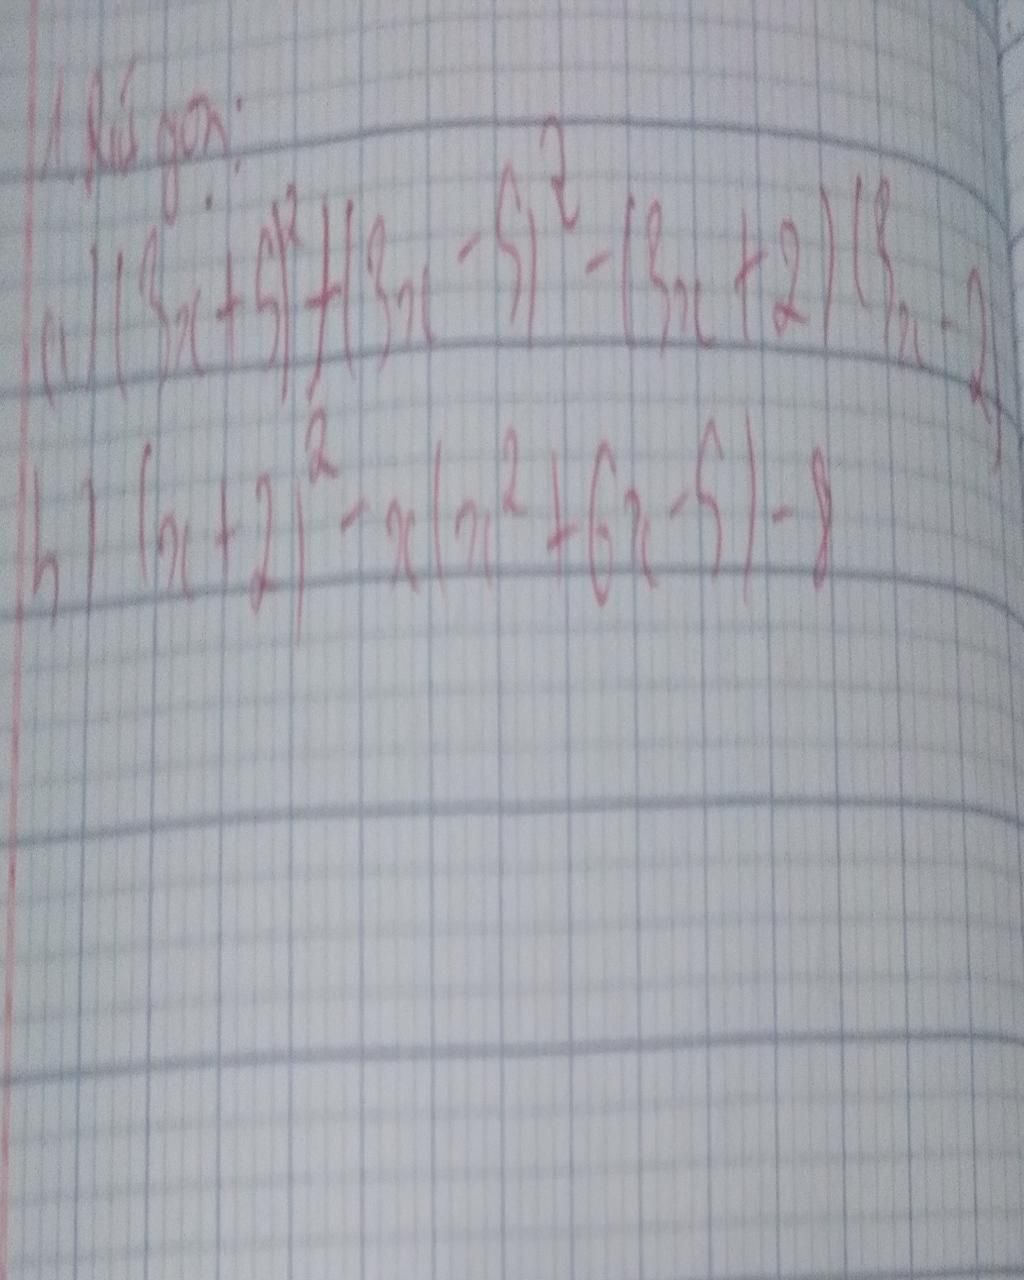 1. Rút gọn:
a) (3x+5)²+(3x-5)²-(3x+2)(3x-2)
b) (x+2)²-x(x²+6x-5)-8